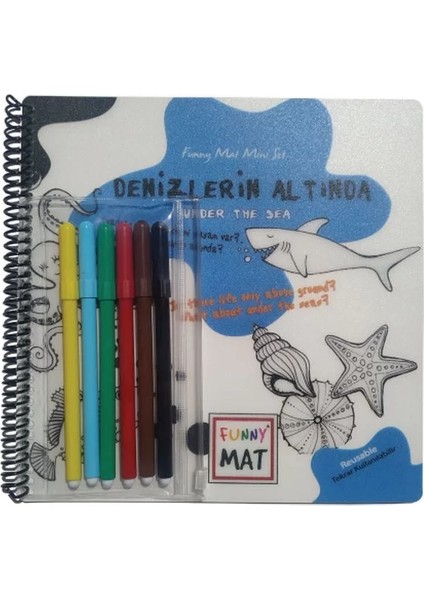 Funny Mat Mini Set
DENİZLERİN ALTINDA
UNDER THE SEA
var?
life only above ground?
What about under the seas?
FUNNY
MAT
Reusable
Tekrar Kullanılabilir